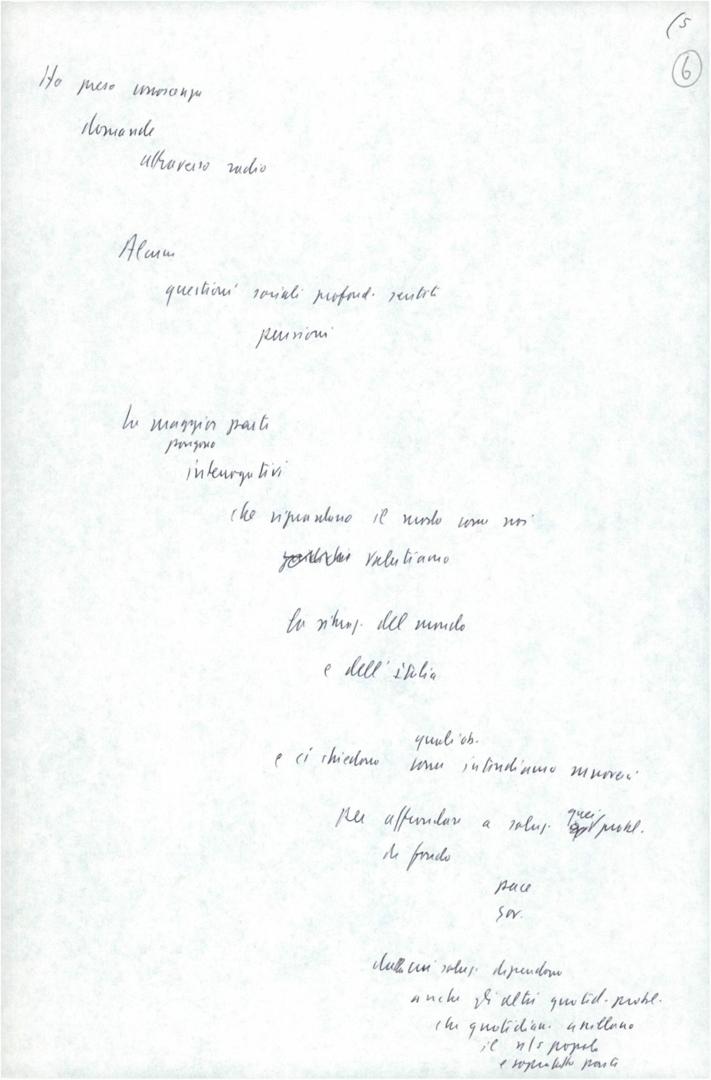 (5
6
Ho preso conoscenza
domande
attraverso radio
Alcune
questioni sociali profond. sentite
pensioni
la maggior parte
pongono
interrogativi
che riguardano il modo come noi
valutiamo
la situaz. del mondo
e dell'italia
quali ob.
e ci chiedono come intendiamo muoverci
per affrontare a soluz. quei probl.
di fondo
pace
sov.
dalla cui soluz. dipendono
anche gli altri quotid. probl.
che quotidian. assillano
il n/s popolo
e soprattutto parte